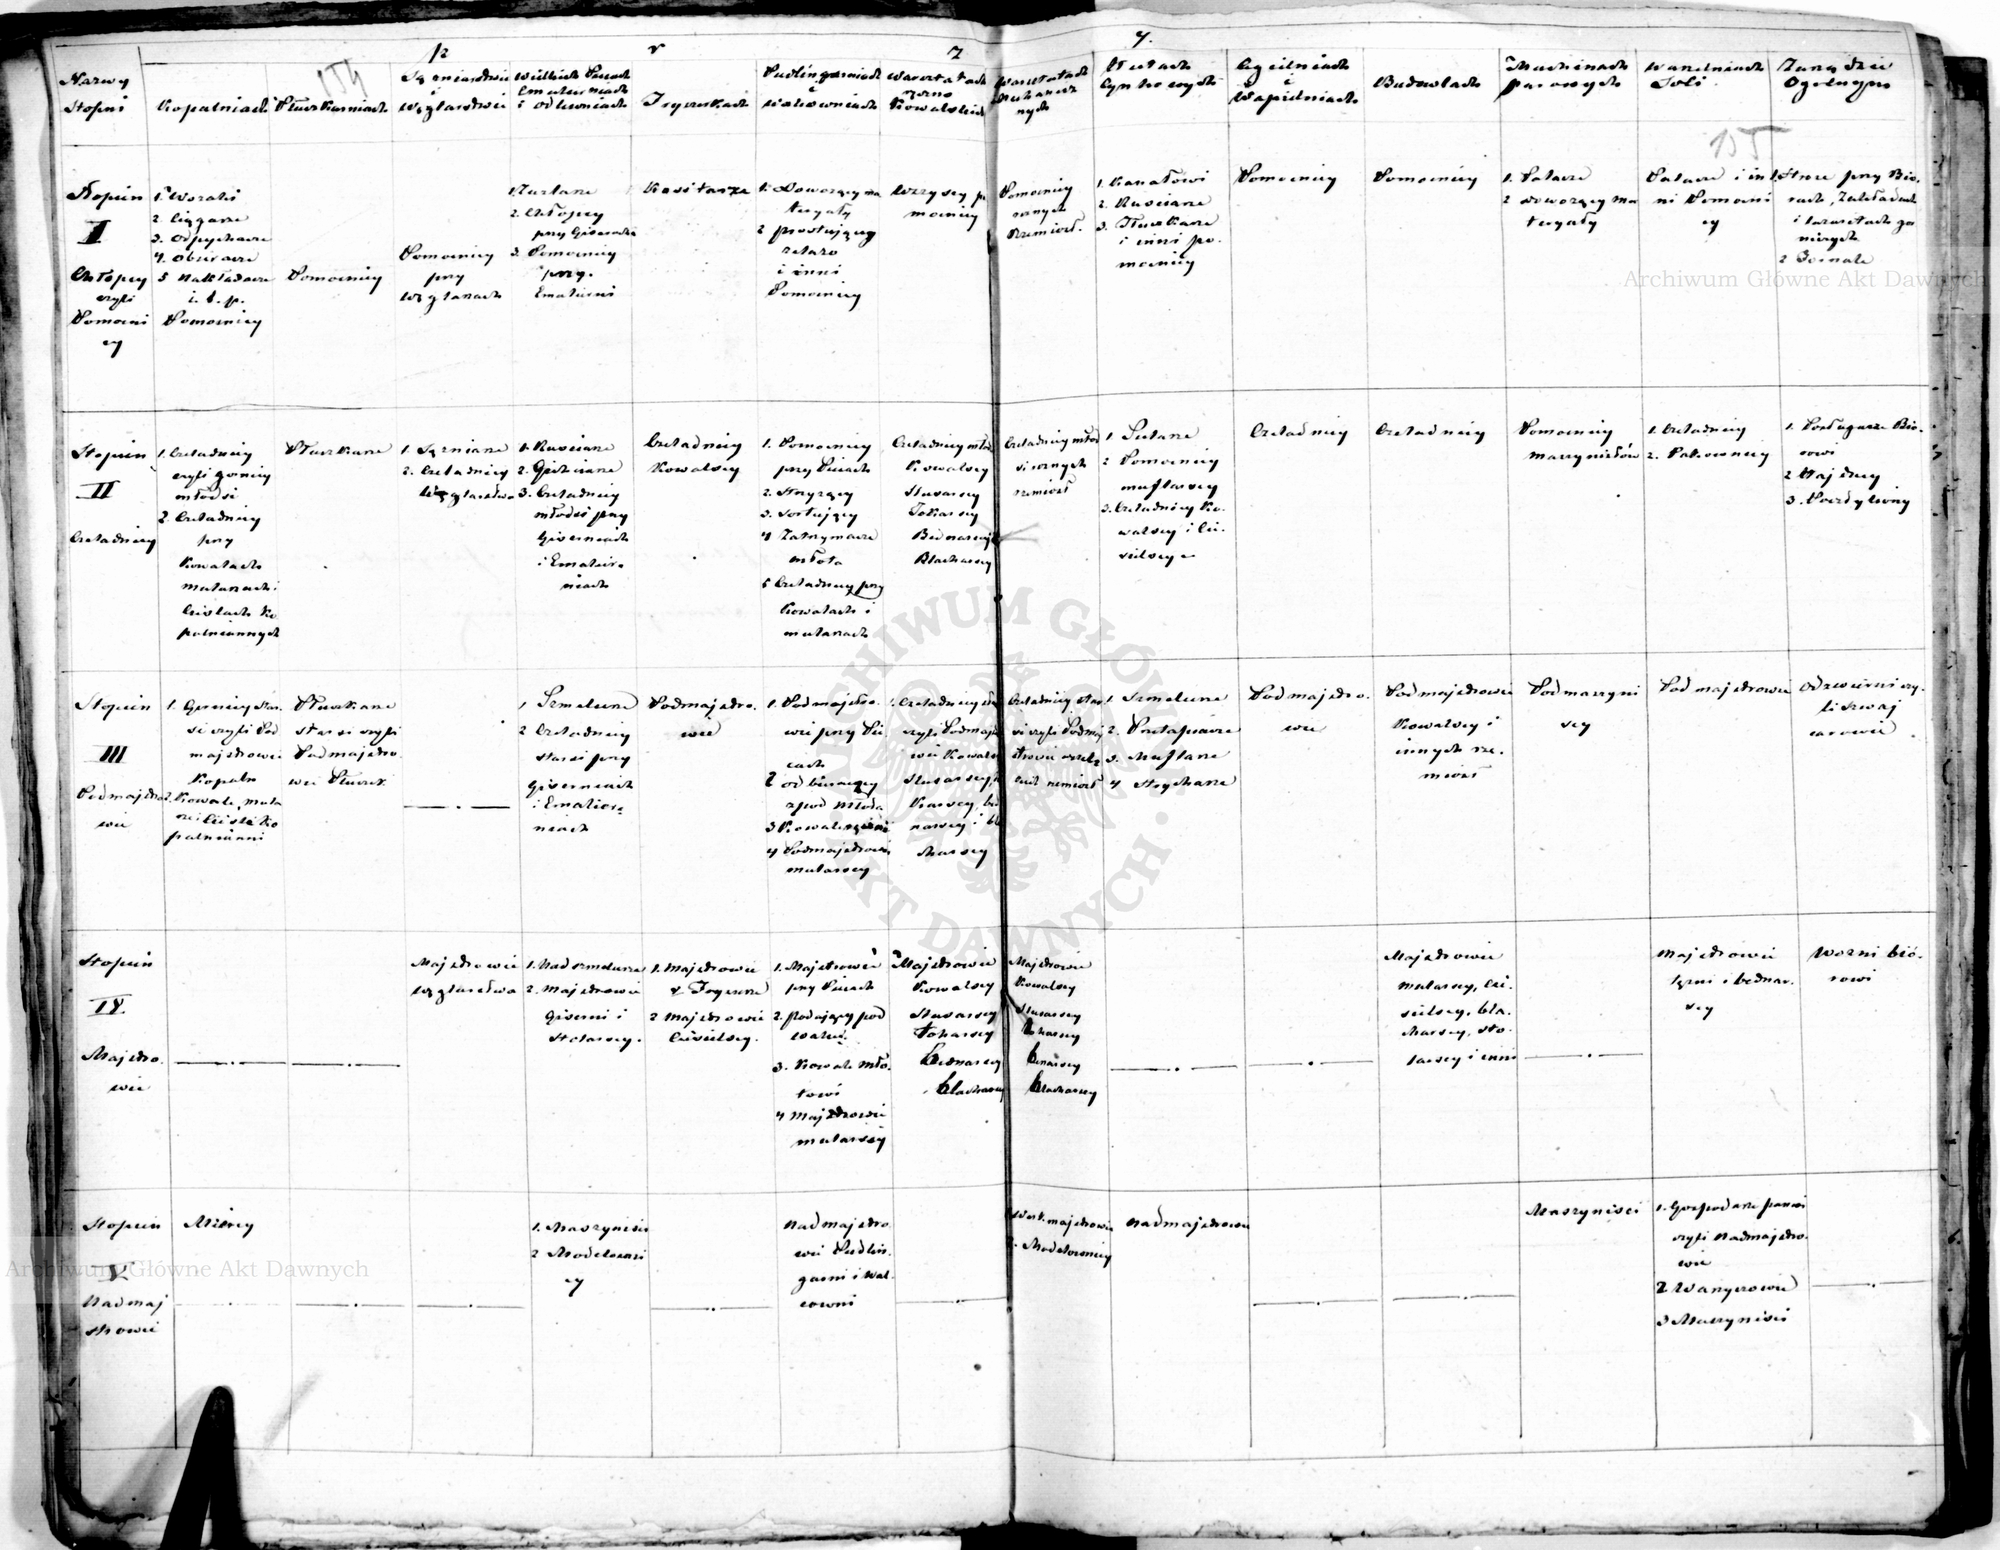 p r z y.
154
155
Nazwy
Stopni
Kopalniach
Płuczkarniach
i
Węglarstwie
Wielkich Piecach
Emalierniach
i odlewniach
Fryszerkach
Pudlingarniach
i
Walcowniach
Warsztatach
Kowalskich
Warsztatach
Mechanicz
nych
Hutach
Cynkowych
Cegielniach
i
Wapielniach
Budowlach
Machinach
parowych
Warzelniach
Soli
Zarządzie
Ogólnym
Stopień
I
Chłopcy
czyli
Pomocni
cy
1. Wozaki
2. Ciągarze
3. Odpychacze
4. Obieracze
5 Nakładacze
i. t. p.
Pomocnicy
Pomocnicy
Pomocnicy
przy
Węglarzach
2. Chłopcy
przy Giserach
3. Pomocnicy
przy
Emalierni
1. Dowożący ma
teryały
2 prostujący
żelazo
i inni
Pomocnicy
Wszyscy po
mocnicy
Pomocnicy
rożnych
rzemiosł.
2. Ruściarze
3. Płuczkarze
i inni po-
mocnicy
Pomocnicy
Pomocnicy
1. Palacze
2 dowożący ma
teryały
Palacze i in
ni Pomocni
cy
1. Stróże przy Biu-
rach, Zakładach
i lazaretach gó
niczych
2 Fornale
Stopień
II
Czeladnicy
1. Czeladnicy
czyli górnicy
młodsi
2. Czeladnicy
przy
Kowalach
mularzach i
Cieślach ko
palnianych
Płuczkarze
2. Czeladnicy
Węglarstwa
1. Ruściarze
2. Giserzarze
3. Czeladnicy
młodsi przy
Giserniach
i Emalier-
niach
Czeladnicy
Kowalscy
1. Pomocnicy
przy Piecach
2. Strzyżący
3. Sortujący
4 Zatrzymacze
młota
5 Czeladnicy przy
Kowalach i
mularzach
Czeladnicy młodsi
Kowalscy
Slusarscy
Tokarscy
Bednarscy
Blacharscy
Czeladnicy młod
si rożnych
rzemiosł
2 Pomocnicy
muflarscy
3. Czeladnicy Ko-
walscy i Cie-
sielscy
Czeladnicy
Czeladnicy
Pomocnicy
maszynistów
1. Czeladnicy
2. Pakownicy
1. Posługacze Biu-
rowi
2 Hajducy
Stopień
III
Podmajstro
wie
1. Górnicy Star-
si czyli Pod
majstrowie
Kopaln
2. Kowale, mula
rze i Cieśle ko
palnianni
Płuczkarze
starsi czyli
Podmajstro-
wie Płuczk.
1 Szmelcerze
2 Czeladnicy
starsi przy
Giserniach
i Emalier-
niach
Podmajstro-
wie
1. Podmajstro-
wie przy Pie
cach
2 odbierający
zpod młota
4 Podmajstrowie
mularscy
1. Szmelcerze
2. Przetapiacze
3. Muflarze
4 Strycharze
Podmajstro-
wie
Podmajstrowie
Kowalscy i
innych rze-
miosł
Podmaszyni
ści
Podmajstrowie
Odźwierni czy-
li szwaj
carowie
Stopień
IV.
Majstro-
wie
Majstrowie
Węglarstwa
1. Nadszmelcerze
2. Majstrowie
Giserni i
Stolarscy.
1. Majstrowie
Fryszerze
2 Majstrowie
Ciesielscy.
1. Majstrowie
przy Piecach
2. podający pod
walce
3. Kowale mło-
towi
4 Majstrowie
mularscy
Majstrowie
Kowalscy
Slusarscy
Tokarscy
Bednarscy
Blacharscy
Majstrowie
Kowalscy
Slusarscy
Tokarscy
Bednarscy
Blacharscy
Majstrowie
mularscy, Cie-
sielscy, bla-
charscy, sto-
larscy i inni
Majstrowie
i bednar-
scy
Woźni biu-
rowi
Stopień
V.
Nadmaj
strowie
1. Maszyniści
2 Modelarni
cy
Nadmajstro
wie Pudlin-
garni i Wal-
cowni
1. Werkmajstrowie
2. Modelownicy
Nadmajstrowie
Maszyniści
1. Gospodarze panwi
czyli Nadmajstro-
wie
3 Maszyniści
Archiwum Główne Akt Dawnych
Archiwum Główne Akt Dawnych
ARCHIWUM GŁÓWNE AKT DAWNYCH